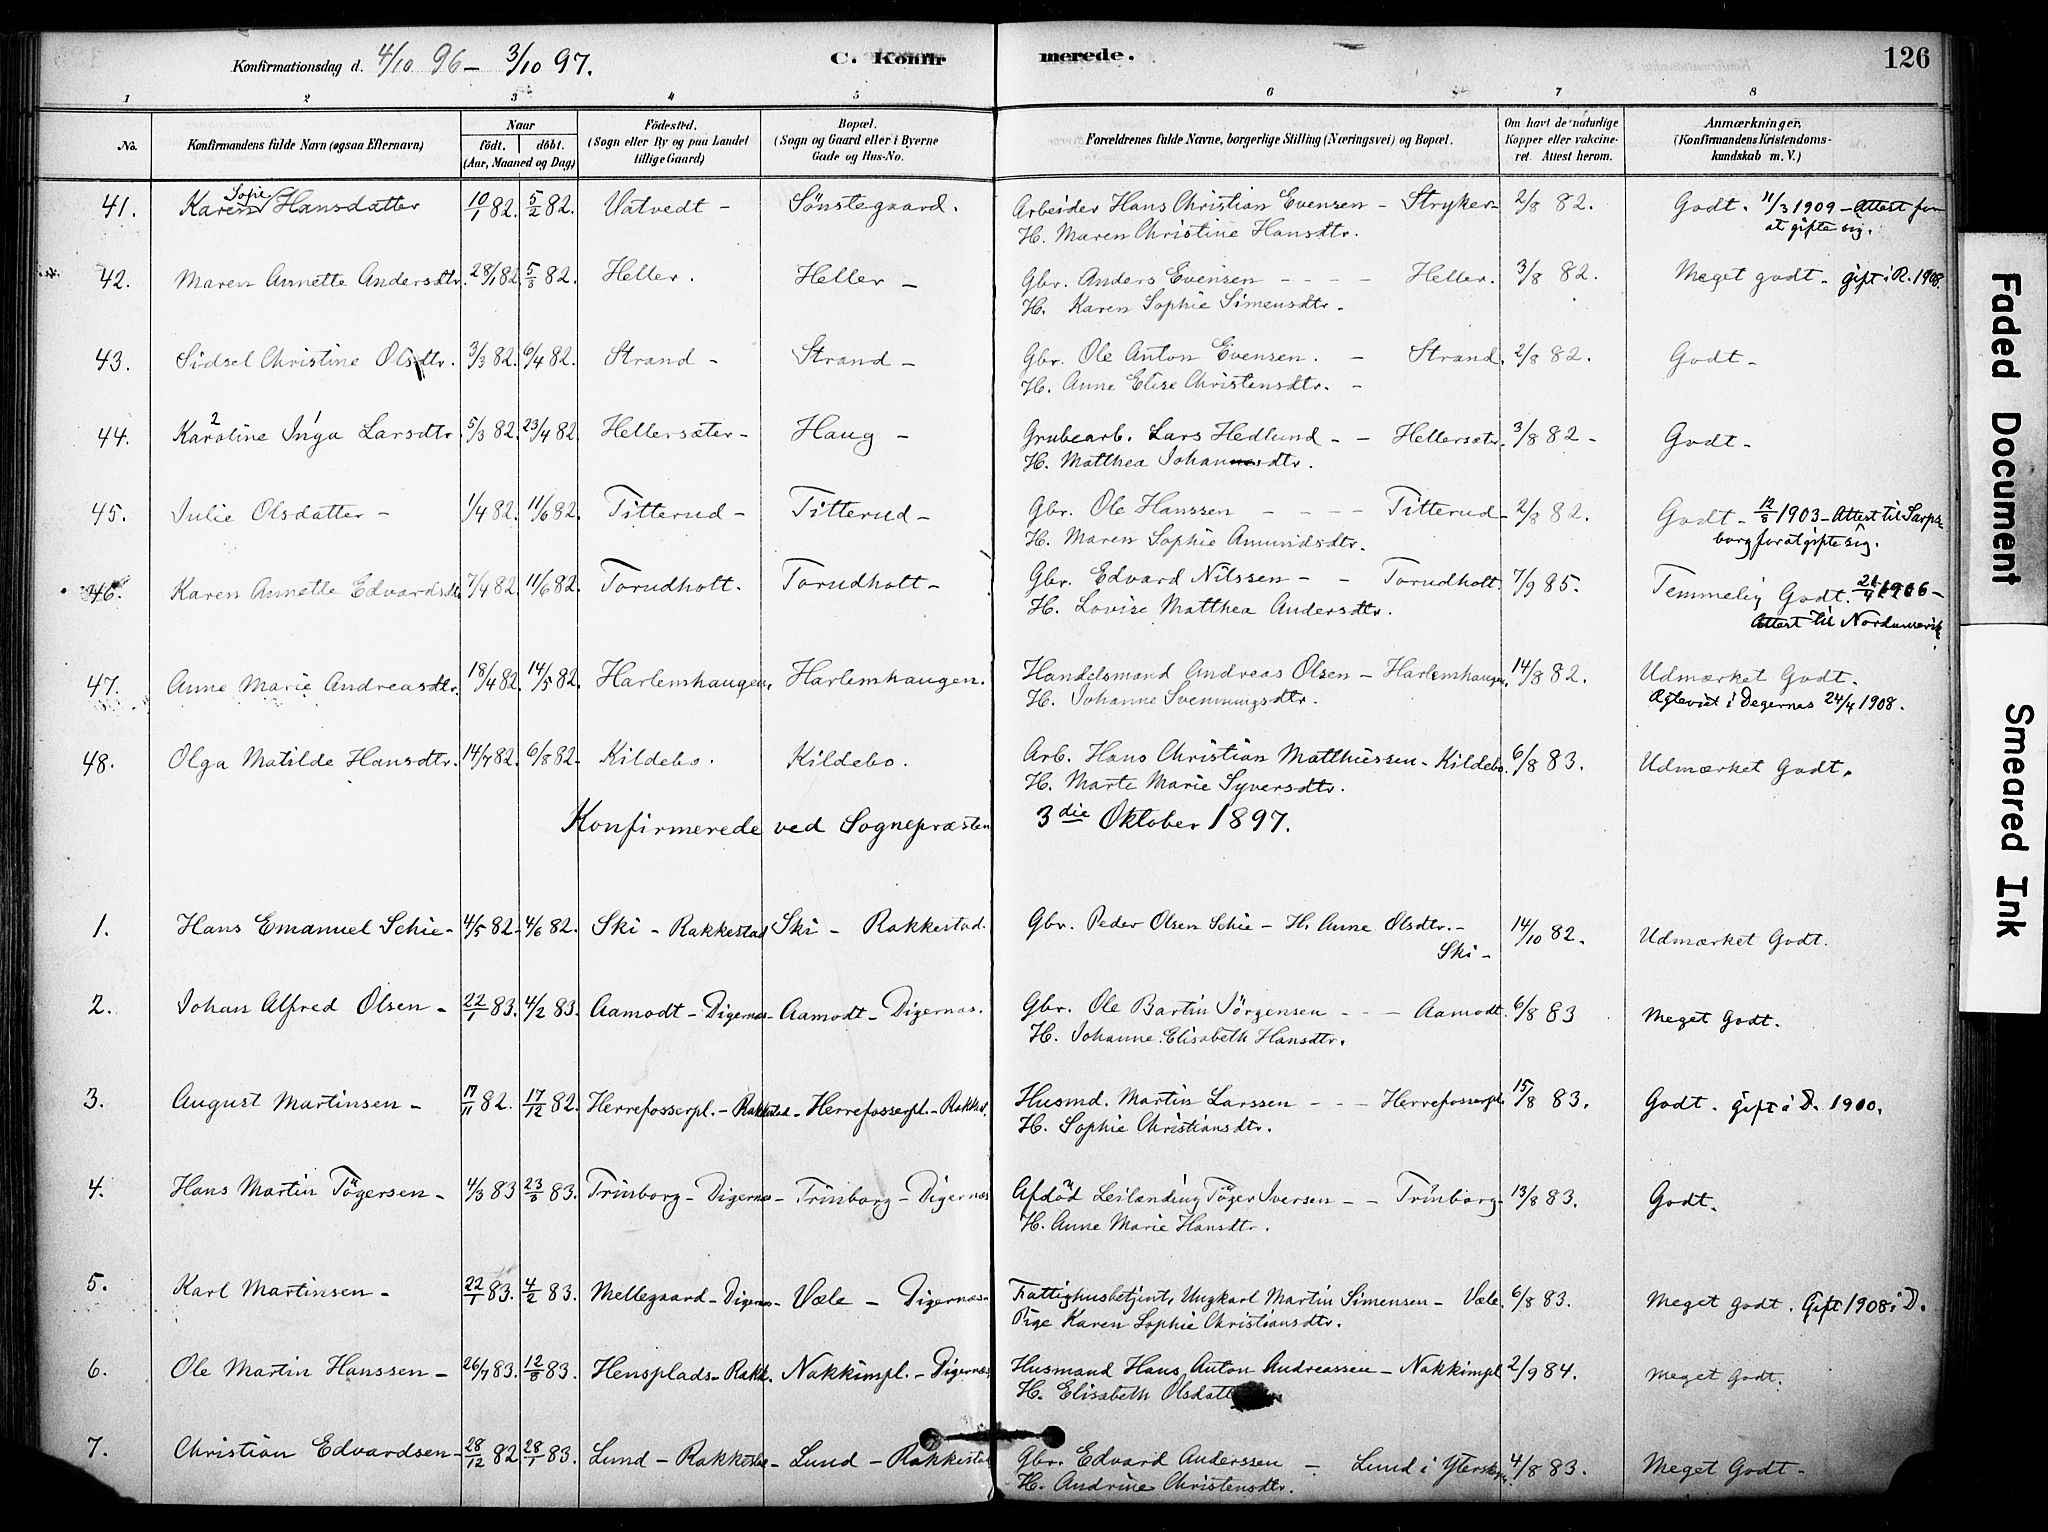 Konfirmationsdag d. 4/10 96 – 3/10 97. C. Konfirmerede. 126
1 2 3 4 5 6 7 8
No. Konfirmandens fulde Navn (ogsaa Efternavn) Naar födt. döbt. (Aar, Maaned og Dag) Födested. (Sogn eller By og paa Landet tillige Gaard) Bopæl. (Sogn og Gaard eller i Byerne Gade og Hus-No. Forældrenes fulde Navne, borgerlige Stilling (Næringsvei) og Bopæl. Om havt de naturlige Kopper eller vakcineret. Attest herom. Anmærkninger, (Konfirmandens Kristendomskundskab m. V.)
41. Karen Sofie Hansdatter 10/1 82. 5/2 82. Vatvedt – Sönstegaard. Arbeider Hans Christian Evensen – Stryken 2/8 82. Godt. 11/3 1909 – Attest for
H. Maren Christine Hansdtr. at gifte sig.
42. Maren Annette Andersdtr. 28/1 82. 5/3 82. Heller. Heller – Gbr. Anders Evensen – – – Heller. 3/8 82. Meget godt – gift i R. 1908.
H. Karen Sophie Simensdtr.
43. Sidsel Christine Olsdtr. 3/3 82. 6/4 82. Strand – Strand – Gbr. Ole Anton Evensen. – Strand. 2/8 82. Godt –
H. Anne Elise Christensdtr. –
44. Karoline 2 Inga 1 Larsdtr. 5/3 82. 23/4 82. Hellersæter – Haug – Grubearb. Lars Hedlund – – Hellersætr. 3/8 82 – Godt –
H. Matthea Johannesdtr.
45. Julie Olsdatter – 1/4 82. 11/6 82. Titterud – Titterud – Gbr. Ole Hanssen – – – Titterud – 2/8 82. Godt – 12/8 1903 – Attest til Sarps-
H. Maren Sophie Amundsdtr. borg for at gifte sig.
46. Karen Annette Edvardsdtr. 7/4 82. 11/6 82. Torudholt. Torudholt – Gbr. Edvard Nilssen – – Torudholt. 7/9 85. Temmelig Godt. 21/4 1906 –
H. Lovise Matthea Andersdtr. Attest til Nordamerik.
47. Anne Marie Andreasdtr. 18/4 82. 14/5 82. Harlemshaugen, Harlemhaugen. Handelsmand Andreas Olsen – Harlemhaugen. 14/8 82. Udmærket Godt.
H. Johanne Svenningsdtr. Ægteviet i Degernes 24/4 1908.
48. Olga Matilde Hansdtr. 14/7 82. 6/8 82 – Kildebo. Kildebo. Arb. Hans Christian Matthiessen – Kildebo. 6/8 83. Udmærket Godt.
H. Marte Marie Syversdtr.
Konfirmerede ved Sognepræsten 3die Oktober 1897.
1. Hans Emanuel Schie – 4/5 82 – 4/6 82. Ski – Rakkestad Ski – Rakkestad. Gbr. Peder Olsen Schie – H. Anne Olsdtr. – 14/10 82. Udmærket Godt.
Ski –
2. Johan Alfred Olsen – 22/1 83. 4/2 83. Aamodt – Digernæs – Aamodt – Digernæs. Gbr. Ole Bartin Jörgensen – – – Aamodt. 6/8 83 Meget Godt.
H. Johanne Elisabeth Hansdtr.
3. August Martinsen – 17/11 82. 17/12 82. Herrefosserpl. – Rakkestad – Herrefosserpl. – Rakkst. Husmd. Martin Larssen – – – Herrefosserpl. 15/8 83. Godt. gift i D. 1900.
H. Sophie Christiansdtr.
4. Hans Martin Tögersen – 4/3 83 23/3 83. Trinborg – Digernæs – Trinborg – Digernæs Afdöd Leilænding Töger Iversen – – Trinborg – 13/8 83. Godt.
H. Anne Marie Hansdtr.
5. Karl Martinsen – 22/1 83. 4/2 83. Mellegaard – Digernæs – Væle – Digernæs – Fattighusbetjent, Ungkarl Martin Simensen – Væle. 6/8 83. Meget Godt. Gift 1908 i D.
Pige Karen Sophie Christiansdtr.
6. Ole Martin Hanssen – 26/7 83. 12/8 83. Hensplads – Rakk. Nakkimpl. – Digernæs Husmand Hans Anton Andreassen – Nakkimpl 2/9 84. Meget Godt.
H. Elisabeth Olsdatter
7. Christian Edvardsen – 28/12 82 28/1 83. Lund – Rakkestad – Lund – Rakkestad Gbr. Edvard Anderssen – Lund i 4/8 83. Meget Godt –
H. Andrine Christensdtr.
Faded Document
Smeared Ink